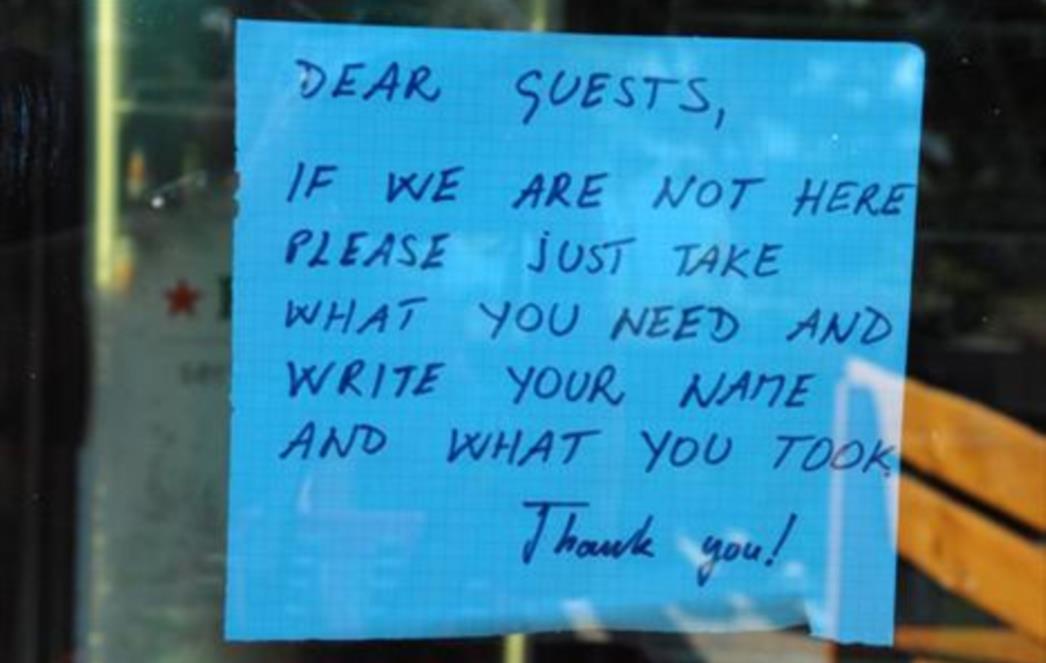 DEAR GUESTS,
IF WE ARE NOT HERE
PLEASE JUST TAKE
WHAT YOU NEED AND
WRITE YOUR NAME
AND WHAT YOU TOOK.
Thank you!